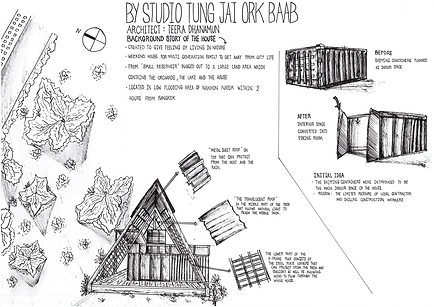 BY STUDIO TUNG JAI ORK BAAB
ARCHITECT : TEERA DHANAMUN
BACKGROUND STORY OF THE HOUSE
- CREATED TO GIVE FEELING OF LIVING IN NATURE
- WEEKEND HOUSE FOR MULTI GENERATION FAMILY TO GET AWAY FROM CITY LIFE
- FROM "SMALL RESERVOIR" DUGGED OUT TO A LARGE LAND AREA WHICH
CONTAINS THE ORCHARDS, THE LAKE AND THE HOUSE
- LOCATED IN LOW FLOORING AREA OF NAKHON NAYOK WITHIN 2
HOURS FROM BANGKOK.
BEFORE
SHIPPING CONTAINERS PLANNED
AS INDOOR SPACE
AFTER
INTERIOR SPACE
CONVERTED INTO
DINING ROOM
INITIAL IDEA
- THE SHIPPING CONTAINERS WERE INTRODUCED TO BE
THE MAIN INDOOR SPACE OF THE HOUSE.
- REASON : THE LIMITED MEASURE OF LOCAL CONTRACTOR
AND SKILLFUL CONSTRUCTION WORKERS
"METAL SHEET ROOF" ON
TOP THAT CAN PROTECT
FROM THE HEAT AND THE
RAIN.
"THE TRANSLUCENT ROOF"
IN THE MIDDLE PART OF THE ROOF
THAT ALLOWS NATURAL LIGHT TO
REACH THE MIDDLE DECK.
THE LOWER PART OF THE
A-FRAME ROOF CONSISTS OF
THE STEEL PLATE LOUVERS THAT
CAN PROTECT FROM THE RAIN AND
SUNLIGHT AS WELL AS ALLOWING
WIND TO FLOW THROUGH THE
WHOLE HOUSE.